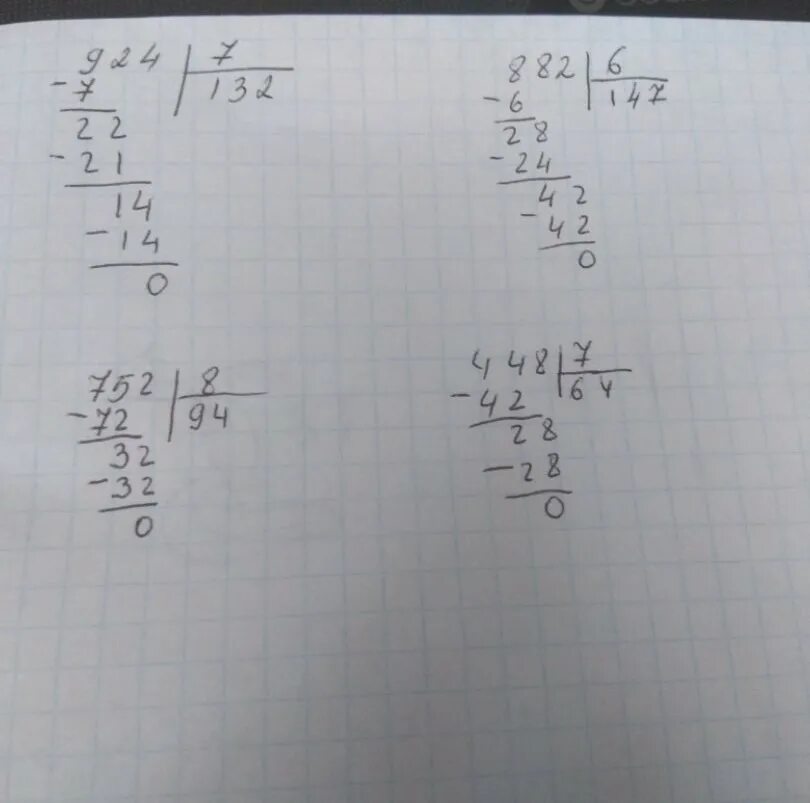 924 | 7
-7 | 132
22
-21
14
-14
0
882 | 6
-6 | 147
28
-24
42
-42
0
752 | 8
-72 | 94
32
-32
0
448 | 7
-42 | 64
28
-28
0